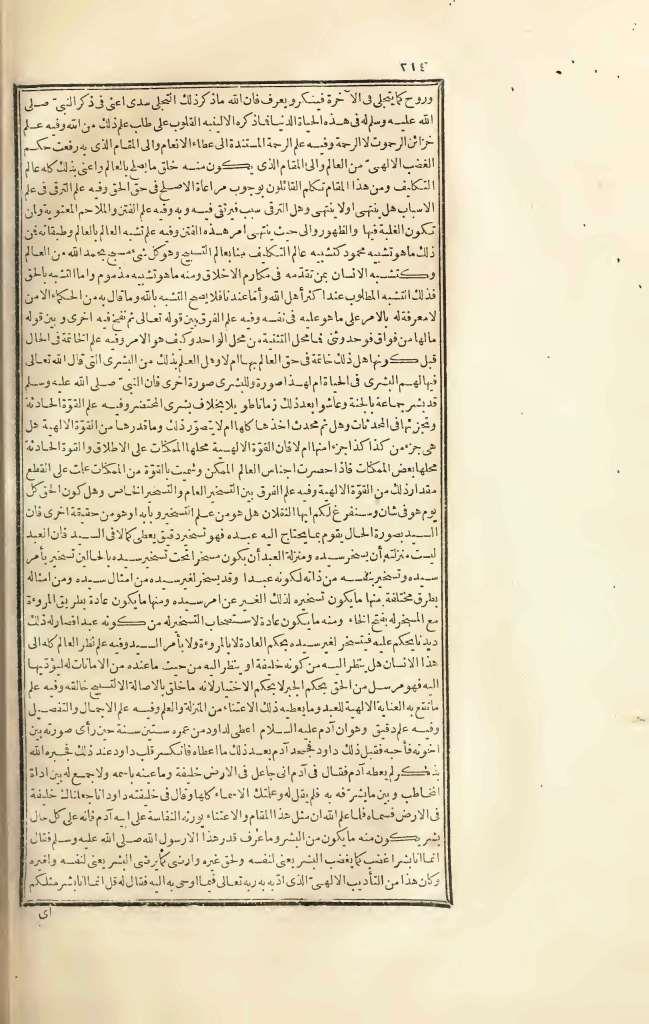 ٢١٤
وروح كما يتجلى فى الآخرة فينكر ويعرف فان الله ما ذكر ذلك التجلى سدى اعنى فى ذكر النبىّ صلى
الله عليه وسلم له فى هذه الحياة الدنيا فما ذكره الا لينبه القلوب على طلب علم ذلك من الله وفيه علم
خزائن الرحموت لا الرحمة وفيه علم الرحمة المستندة الى عطاء الانعام والى المقام الذى به رفعت حكم
الغضب الالهىّ من العالم والى المقام الذى يكون منه خلق ما يصلح بالعالم واعنى بذلك كله عالم
التكليف ومن هذا المقام تكلم القائلون بوجوب مراعاة الاصلح فى حق الحق وفيه علم الترقى فى علم
الاسباب هل ينتهى او لا ينتهى وهل الترقى سبب فيرتقى فيه وبه وفيه علم الفتن والملاحم المعنوية وان
تكون الغلبة فيها والظهور والى حيث ينتهى امر هذه الفتن وفيه علم تشبه العالم بالعالم وطبقاته فمن
ذلك ما هو تشبيه محمود كتشبيه عالم التكليف منا بعالم التسبيح وهو كل شىء مسبح بحمد الله من العالم
وكتشبه الانسان بمن تقدّمه فى مكارم الاخلاق ومنه ما هو تشبيه مذموم واما التشبه بالحق
فذلك التشبه المطلوب عند اكثر أهل الله وأما عندنا فلا يصح التشبه بالله وما قال به من الحكماء الا من
لا معرفة له بالامر على ما هو عليه فى نفسه وفيه علم الفرق بين قوله تعالى ثم نفخ فيه اخرى وبين قوله
ما لها من فواق فوحد وثنى فما محل التثنية من محل الواحد وكيف هو الامر وفيه علم الخاتمة فى الحال
قبل كونها هل ذلك خاتمة فى حق العالم بها ام لا وهل العلم بذلك من البشرى التى قال الله تعالى
فيها لهم البشرى فى الحياة ام لهذا صورة وللبشرى صورة اخرى فان النبىّ صلى الله عليه وسلم
قد بشر جماعة بالجنة وعاشوا بعد ذلك زمانا طويلا بخلاف بشرى المحتضر وفيه علم القوّة الحادثة
وتجزئها فى المحدثات وهل ثم محدث اخذها كلها ام لا يتصوّر ذلك وما قدرها من القوّة الالهية هل
هى جزء من كذا كذا جزء امنها ام لا فان القوّة الالهية محلها الممكنات على الاطلاق والقوة الحادثة
محلها بعض الممكنات فاذا حصرت اجناس العالم الممكن وسميت بالقوّة من الممكنات علمت على القطع
مقدار ذلك من القوّة الالهية وفيه علم الفرق بين التسخير العام والتسخير الخاص وهل كون الحق كل
يوم هو فى شان وسنفرغ لكم ايها الثقلان هل هو من علم التسخير وبابه او هو من حقيقة اخرى فان
السيد بصورة الحال يقوم بما يحتاج اليه عبده فهو تسخير دقيق يعطى كمالا فى السيد فان العبد
ليست منزلته أن يسخر سيده ومنزلة العبد أن يكون مسخرا تحت تسخير سيده بالحال بن تسخير بأمر
سيده وتسخير بنفسه من ذاته لكونه عبدا وقد يسخر لغير سيده من امثال سيده ومن امثاله
بطرق مختلفة منها ما يكون تسخيره لذلك الغير عن امر سيده ومنها ما يكون عادة بطريق المروءة
مع المسخر له بفتح الخاء ومنه ما يكون عادة لاستصحاب التسخير له من كونه عبدا فصار له ذلك
ديدنا يحكم عليه فيتسخر لغير سيده بحكم العادة لا بالمروءة ولا بأمر السيد وفيه علم نظر العالم كله الى
هذا الانسان هل ينظر اليه من كونه خليفة او ينظر اليه من حيث ما عنده من الامانات له ليؤدّيها
اليه فهو مرسل من الحق بحكم الجبر لا بحكم الاختيار لانه ما خلق بالاصالة الا لتسبيح خالقه وفيه علم
ما تقع به العناية الالهية للعبد وما يعطيه ذلك الاعتناء من المنزلة والعلم وفيه علم الاجمال والتفصيل
وفيه علم دقيق وهو ان آدم عليه السلام اعطى لداود من عمره ستين سنة حين رأى صورته بين
اخوته فأحبه فقبل ذلك داود فجحده آدم بعد ذلك ما اعطاه فانكسر قلب داود عند ذلك فجبره الله
بذكر لم يعطه آدم فقال فى آدم انى جاعل فى الارض خليفة وما عينه باسمه ولا جمع له بين اداة
المخاطب وبين ما يشرّفه به فلم يقل له وعلمتك الاسماء كلها وقال فى خليفته داود انا جعلناك خليفة
فى الارض فسماه فلما علم الله ان مثل هذا المقام والاعتناء يورثه النفاسة على ابيه آدم فانه على كل حال
بشر يكون منه ما يكون من البشر وما عرف قدر هذا الا رسول الله صلى الله عليه وسلم فقال
انما انا بشر اغضب كما يغضب البشر يعنى لنفسه ولحق غيره وارضى كما يرضى البشر يعنى لنفسه ولغيره
وكان هذا من التأديب الالهىّ الذى ادّبه به ربه تعالى فيما اوحى به اليه فقال له قل انما انا بشر مثلكم
اى